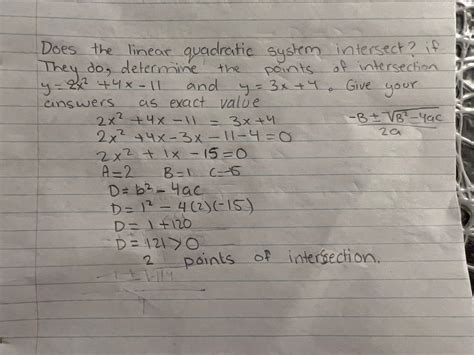 Does the linear quadratic system intersect? if
They do, determine the points of intersection
y = 2x² + 4x - 11 and y = 3x + 4. Give your
answers as exact value
2x² + 4x - 11 = 3x + 4
-B ± √B² - 4ac
2a
2x² + 4x - 3x - 11 - 4 = 0
2x² + 1x - 15 = 0
A = 2 B = 1
D = b² - 4ac
D = 1² - 4(2)(-15)
D = 1 + 120
D = 121 > 0
2 points of intersection.